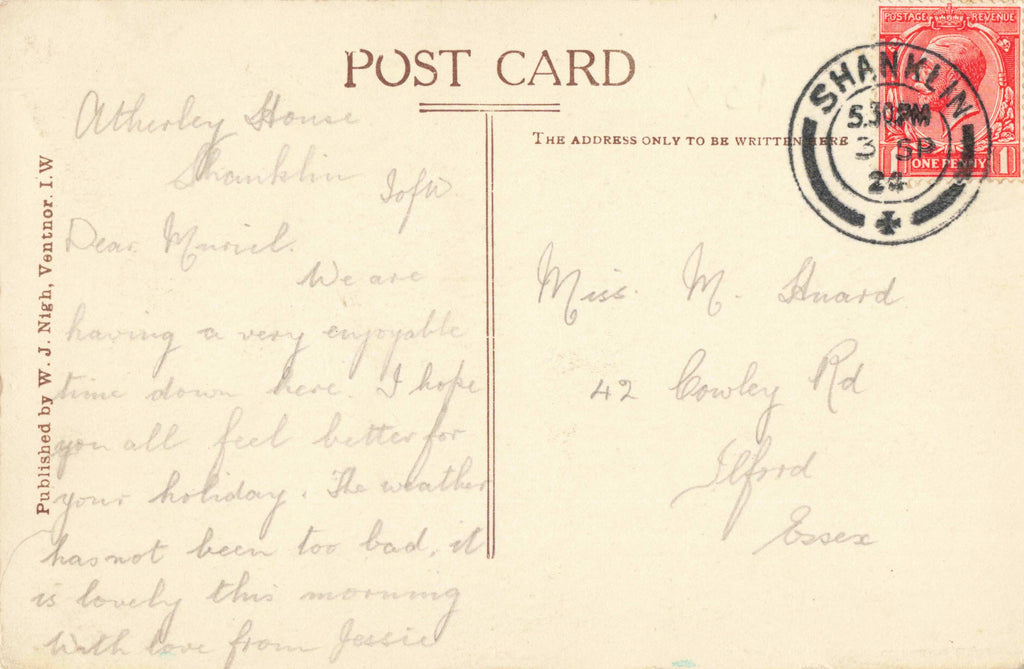 POST CARD
THE ADDRESS ONLY TO BE WRITTEN HERE
POSTAGE REVENUE
1 ONE PENNY 1
SHANKLIN
5.30PM
3 SP
24
Published by W. J. Nigh, Ventnor. I.W
Atherley House
Shanklin
IofW
Dear Muriel.
We are
having a very enjoyable
time down here. I hope
you all feel better for
your holiday. The weather
has not been too bad, it
is lovely this morning
With love from Jessie
Miss. M. Huard
42 Cowley Rd
Ilford
Essex